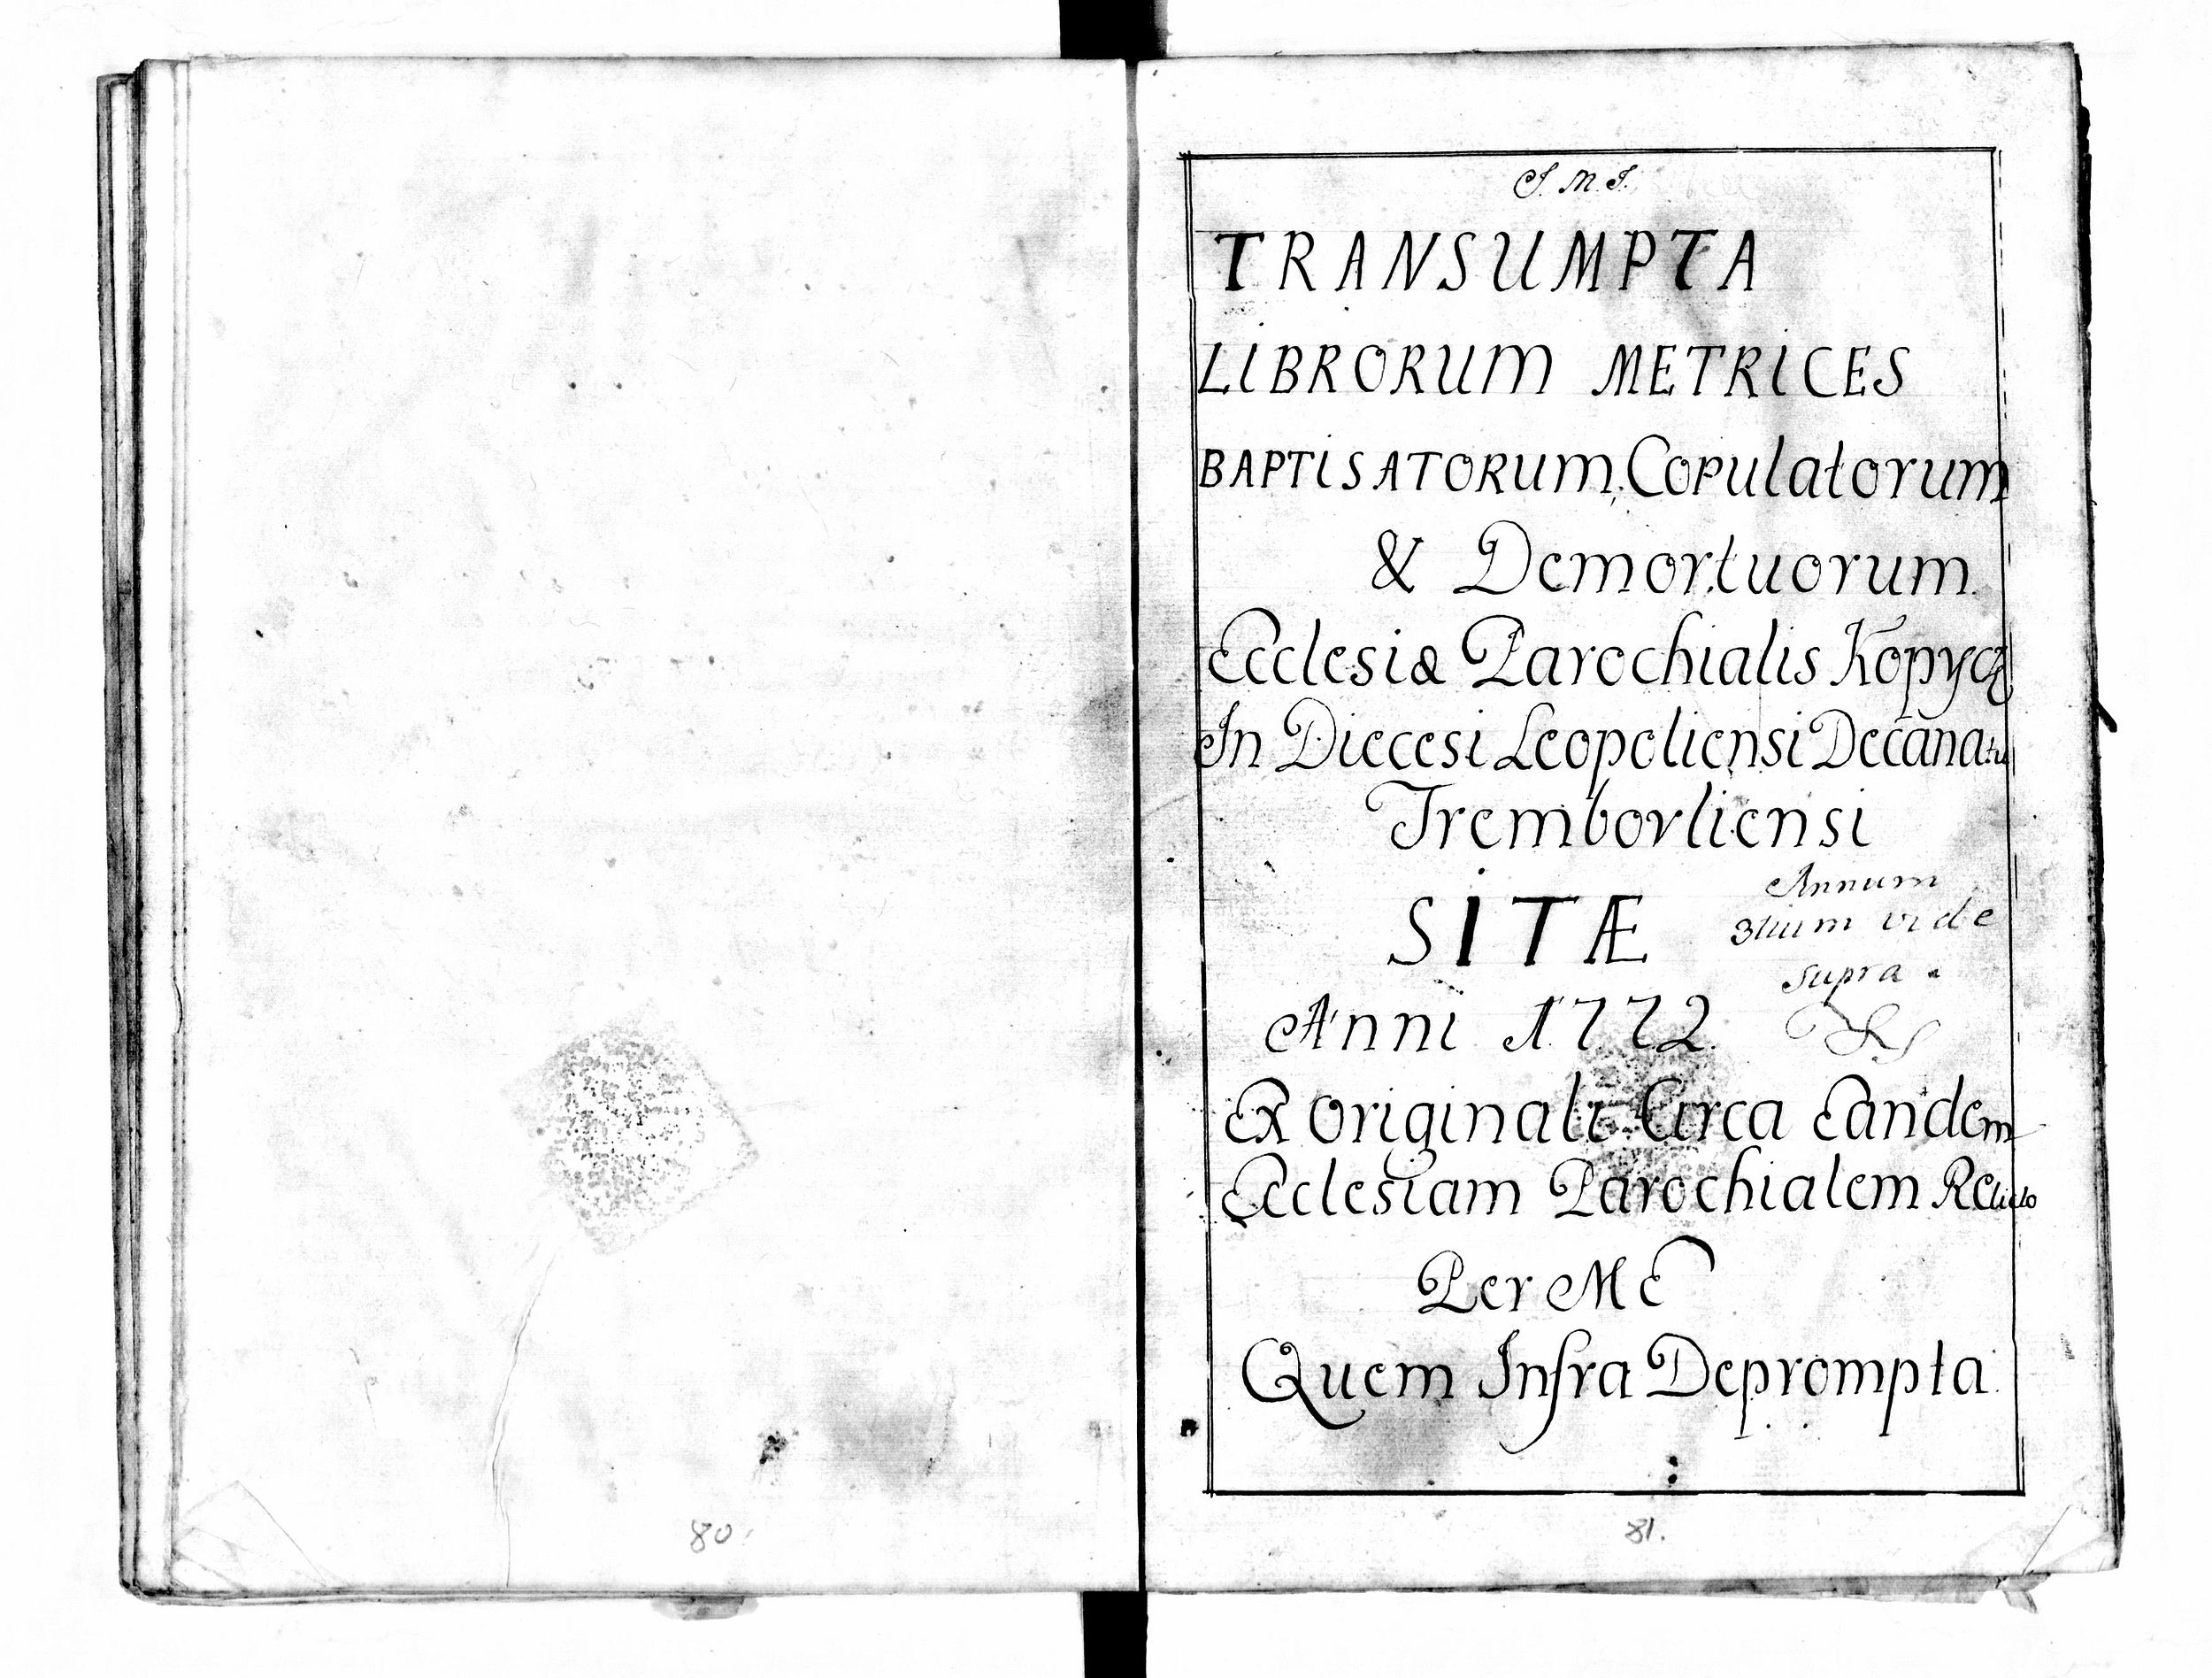 J. M. J.
TRANSUMPTA
LIBRORUM METRICES
BAPTISATORUM, Copulatorum
& Demortuorum.
Ecclesiæ Parochialis Kopycz
In Diecesi Leopoliensi Decanatu
Trembovliensi
SITÆ
Annum
31um vide
supra.
Anni 1772.
Ex Originali Circa Eandem
Ecclesiam Parochialem Relicto
Per ME
Quem Infra Deprompta.
80.
81.